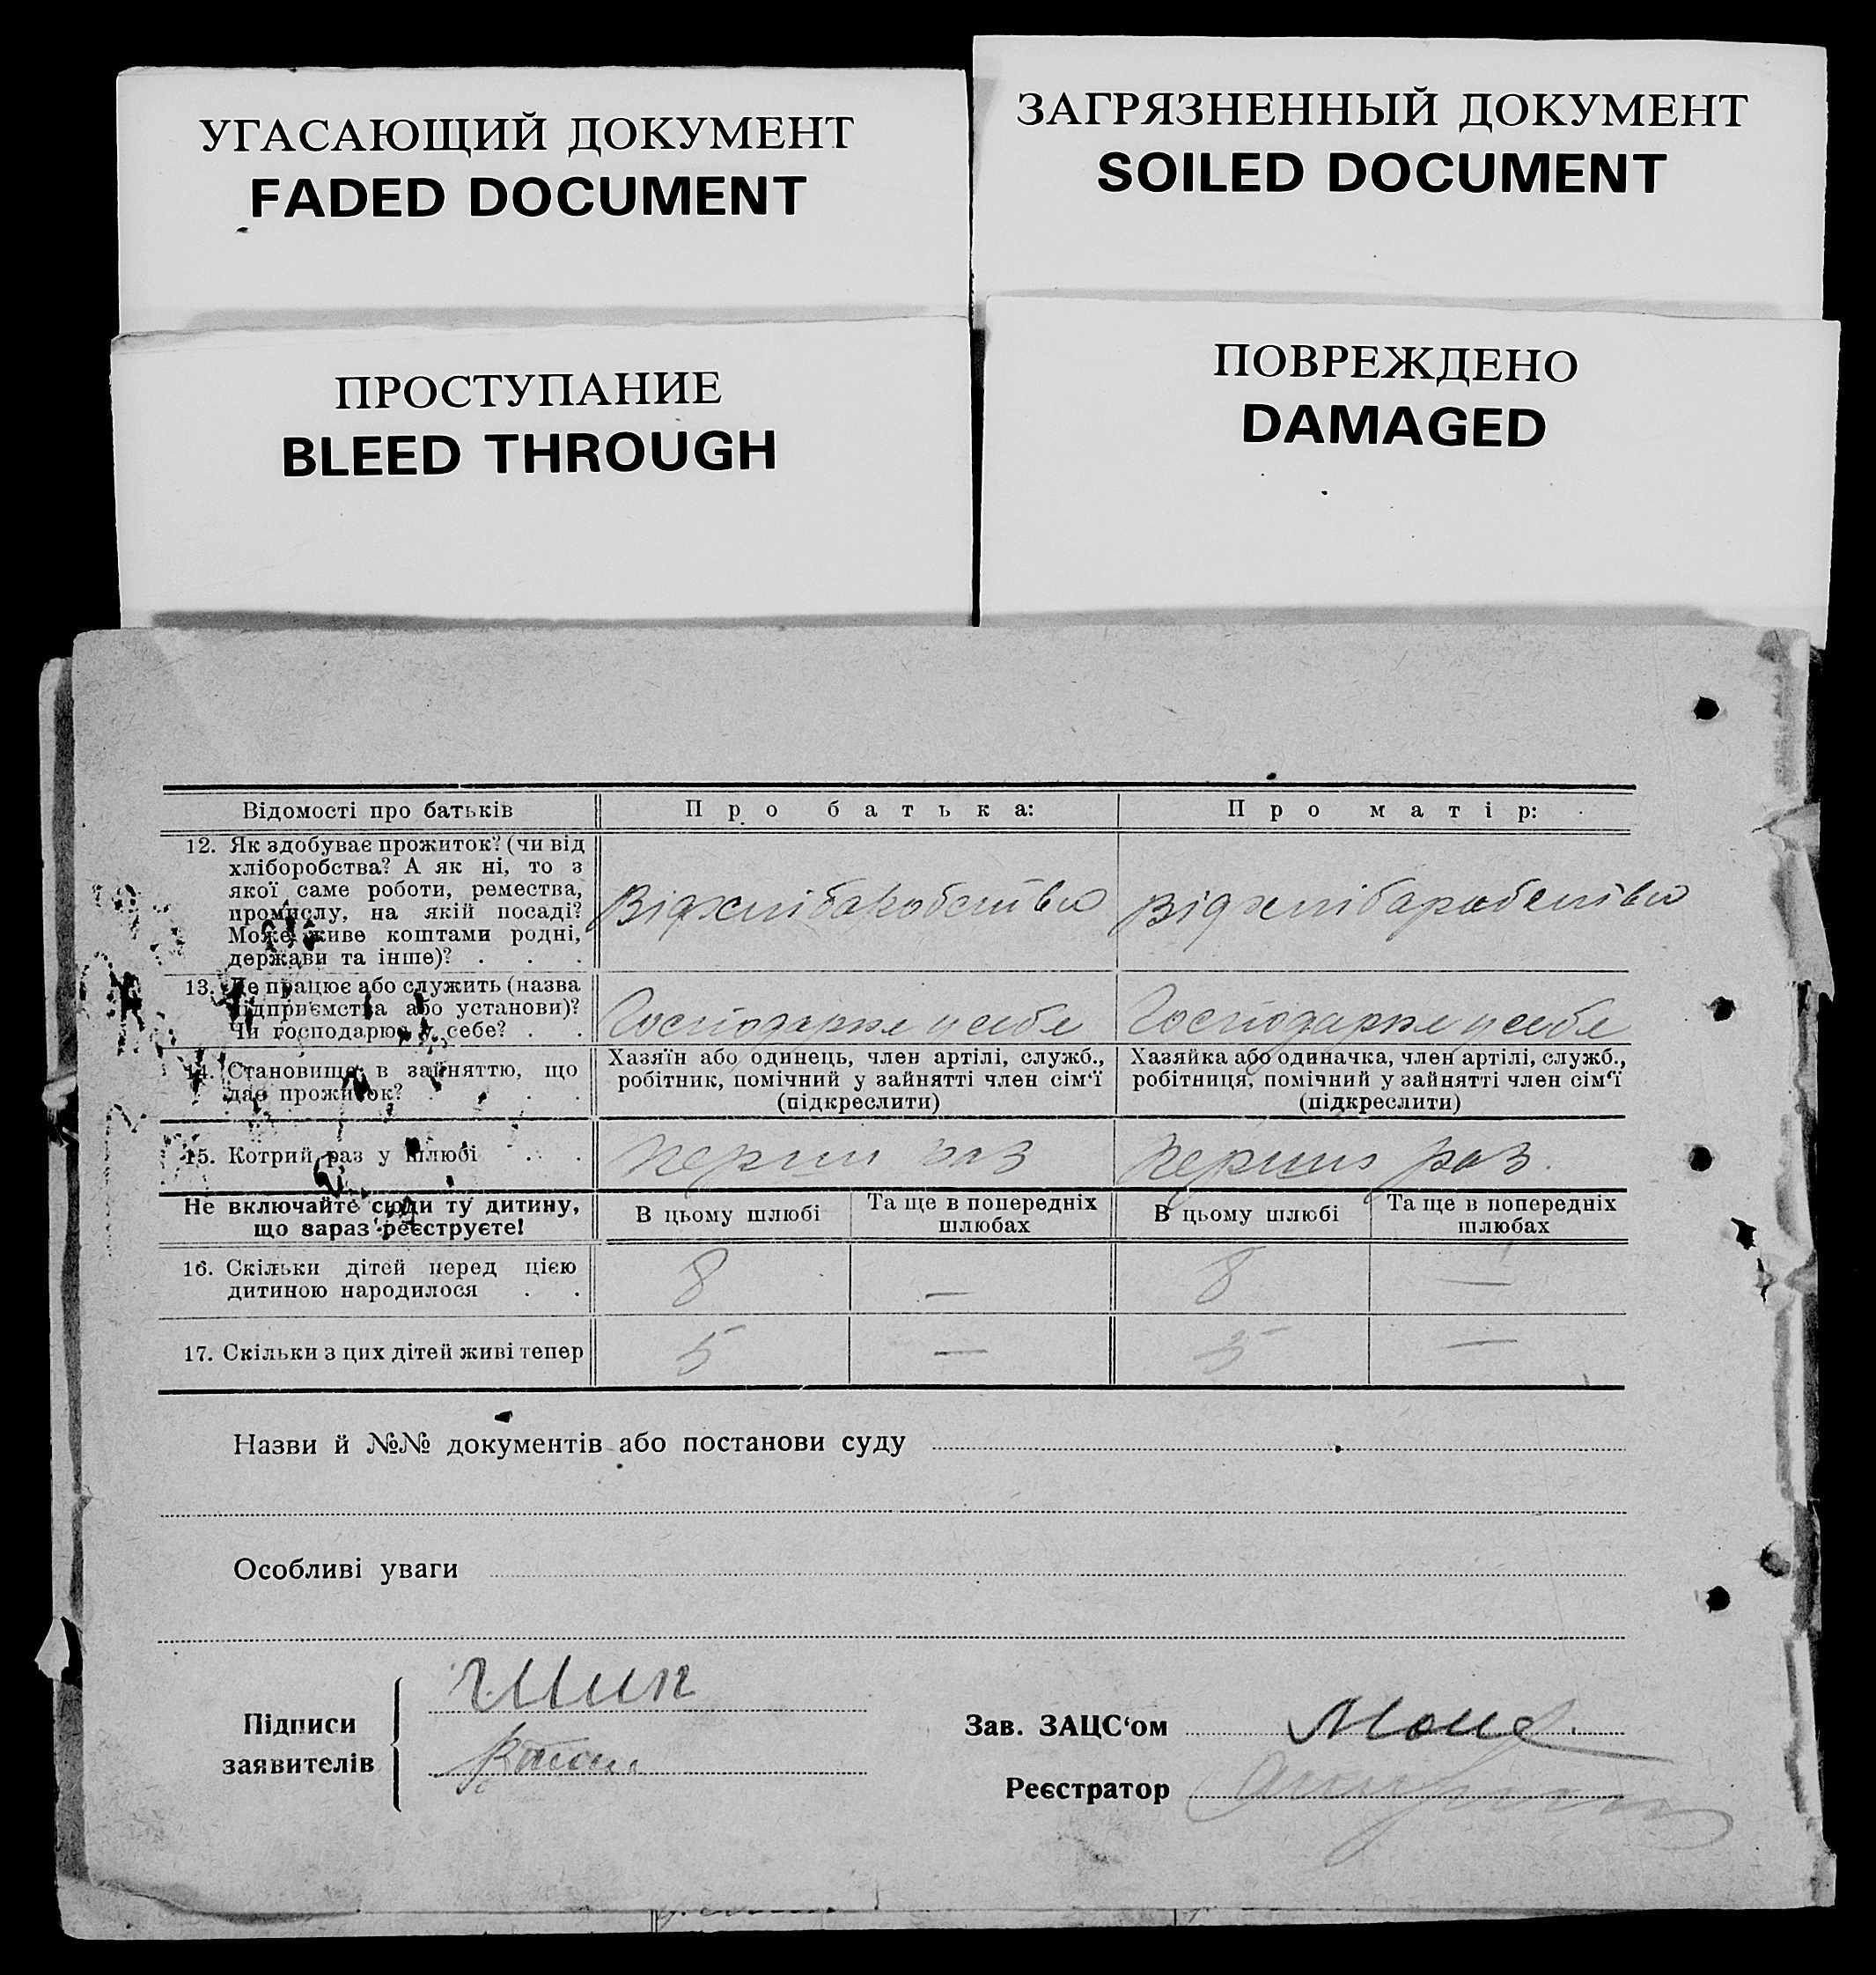 УГАСАЮЩИЙ ДОКУМЕНТ
FADED DOCUMENT
ЗАГРЯЗНЕННЫЙ ДОКУМЕНТ
SOILED DOCUMENT
ПРОСТУПАНИЕ
BLEED THROUGH
ПОВРЕЖДЕНО
DAMAGED
Відомості про батьків
Про батька:
Про матір:
12. Як здобуває прожиток? (чи від
хліборобства? А як ні, то з
якої саме роботи, ремества,
промислу, на якій посаді?
Може живе коштами родні,
держави та інше)? . . .
Відхлібаробства
Відхлібаробства
13. Де працює або служить (назва
підприємства або установи)?
Чи господарює у себе? . .
Господарює у себе
Господарює у себе
14. Становище в зайняттю, що
дає прожиток? . . . .
Хазяїн або одинець, член артілі, служб.,
робітник, помічний у зайнятті член сім'ї
(підкреслити)
Хазяйка або одиначка, член артілі, служб.,
робітниця, помічний у зайнятті член сім'ї
(підкреслити)
15. Котрий раз у шлюбі . . .
перши раз
перши раз.
Не включайте сюди ту дитину,
що зараз реєструєте!
В цьому шлюбі
Та ще в попередніх
шлюбах
В цьому шлюбі
Та ще в попередніх
шлюбах
16. Скільки дітей перед цією
дитиною народилося . .
8 — 8 —
17. Скільки з цих дітей живі тепер
5 — 5 —
Назви й №№ документів або постанови суду
Особливі уваги
Підписи
заявителів
Зав. ЗАЦС'ом
Реєстратор